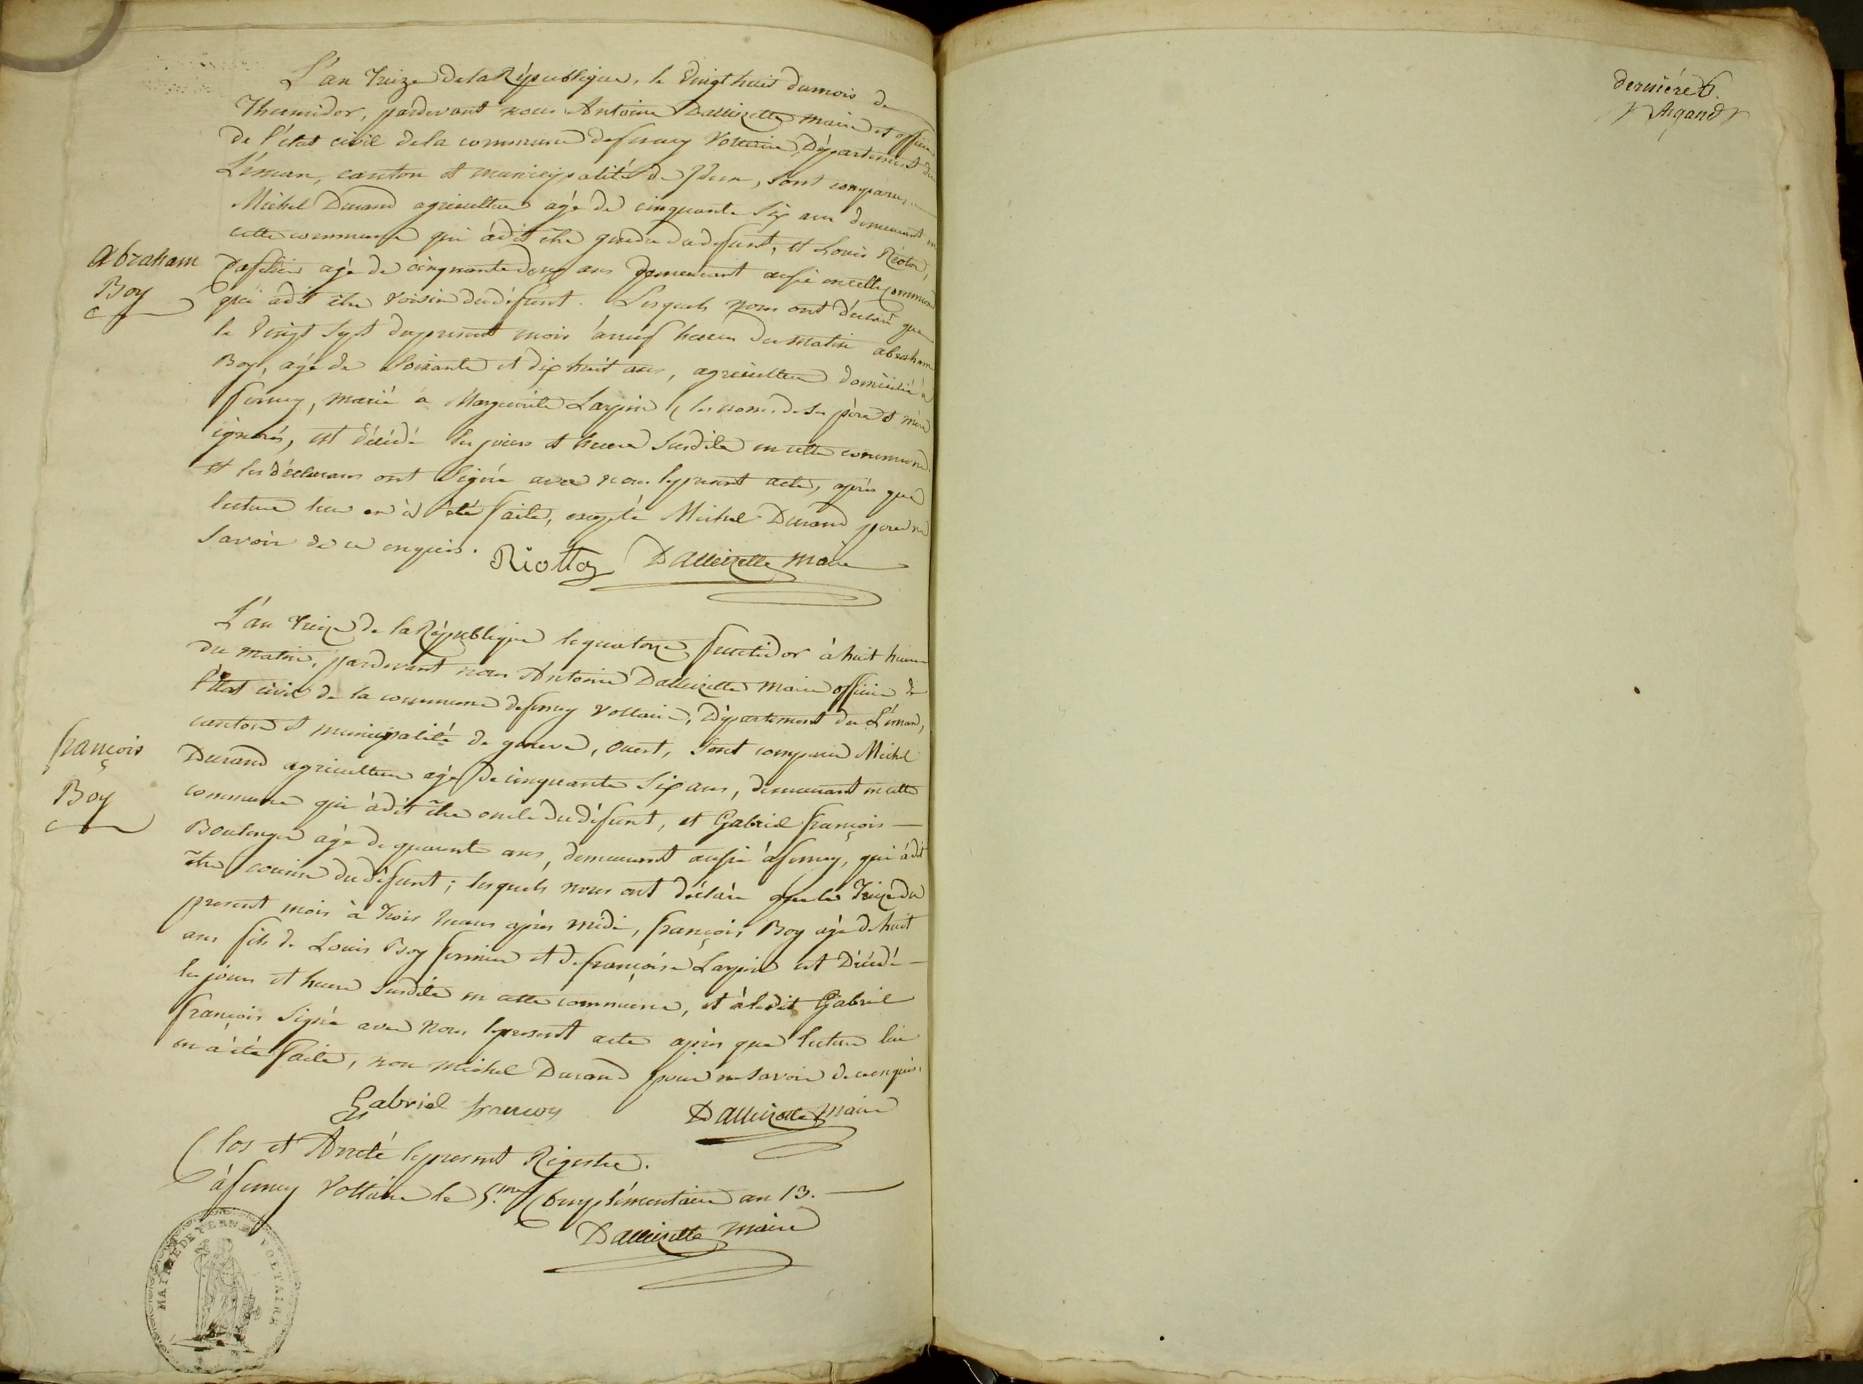 L'an treize de la République, le vingt huit du mois de
Thermidor, pardevant nous Antoine Dallizette maire et officier
de l'état civil de la commune de ferney Voltaire, Département du
Léman, canton et municipalité de , sont comparus
Michel Durand agriculteur agé de cinquante six ans demeurant en
cette commune qui à dit être du défunt, et Louis Riotton,
agé de cinquante deux ans demeurant aussi en cette commune
qui à dit être voisin du défunt. Lesquels nous ont déclaré que
le vingt sept du present mois à neuf heures du matin abraham
Boy, agé de soixante et dix huit ans, agriculteur domicilié à
ferney, marié à Marguerite Larpin (les noms de ses père et mère
ignorés, est décédé les jours et heure susdite en cette commune.
et les déclarans ont signé avec nous le present acte, après que
lecture leur en à été faite, excepté Michel Durand pour ne
savoir de ce enquis.
Riotton Dallizette maire
abraham
Boy
L'an treize de la République le quatorze fructidor à huit heures
du matin, pardevant nous Antoine Dallizette maire officier de
l'état civil de la commune de ferney Voltaire, Département du Léman,
canton et municipalité de geneve, ouest, sont comparu Michel
Durand agriculteur agé de cinquante six ans, demeurant en cette
commune qui à dit être oncle du défunt, et Gabriel françois
Boulenger agé de quarante ans, demeurant aussi à ferney, qui à dit
être cousin du défunt; lesquels nous ont déclaré que le treize du
present mois à trois heures après midi, françois Boy agé de huit
ans fils de Louis Boy fermier et de françoise Larpin est Décédé
les jours et heure susdite en cette commune, et à ledit Gabriel
françois signé avec nous le present acte après que lecture lui
en à été faite, non michel Durand pour ne savoir de ce enquis.
françois
Boy
Gabriel francois Dallizette maire
Clos et Arreté le present Régistre.
à ferney Voltaire le 5.me Complémentaire an 13.
Dallizette maire
MAIRIE DE FERNEY VOLTAIRE
derniére
Argand